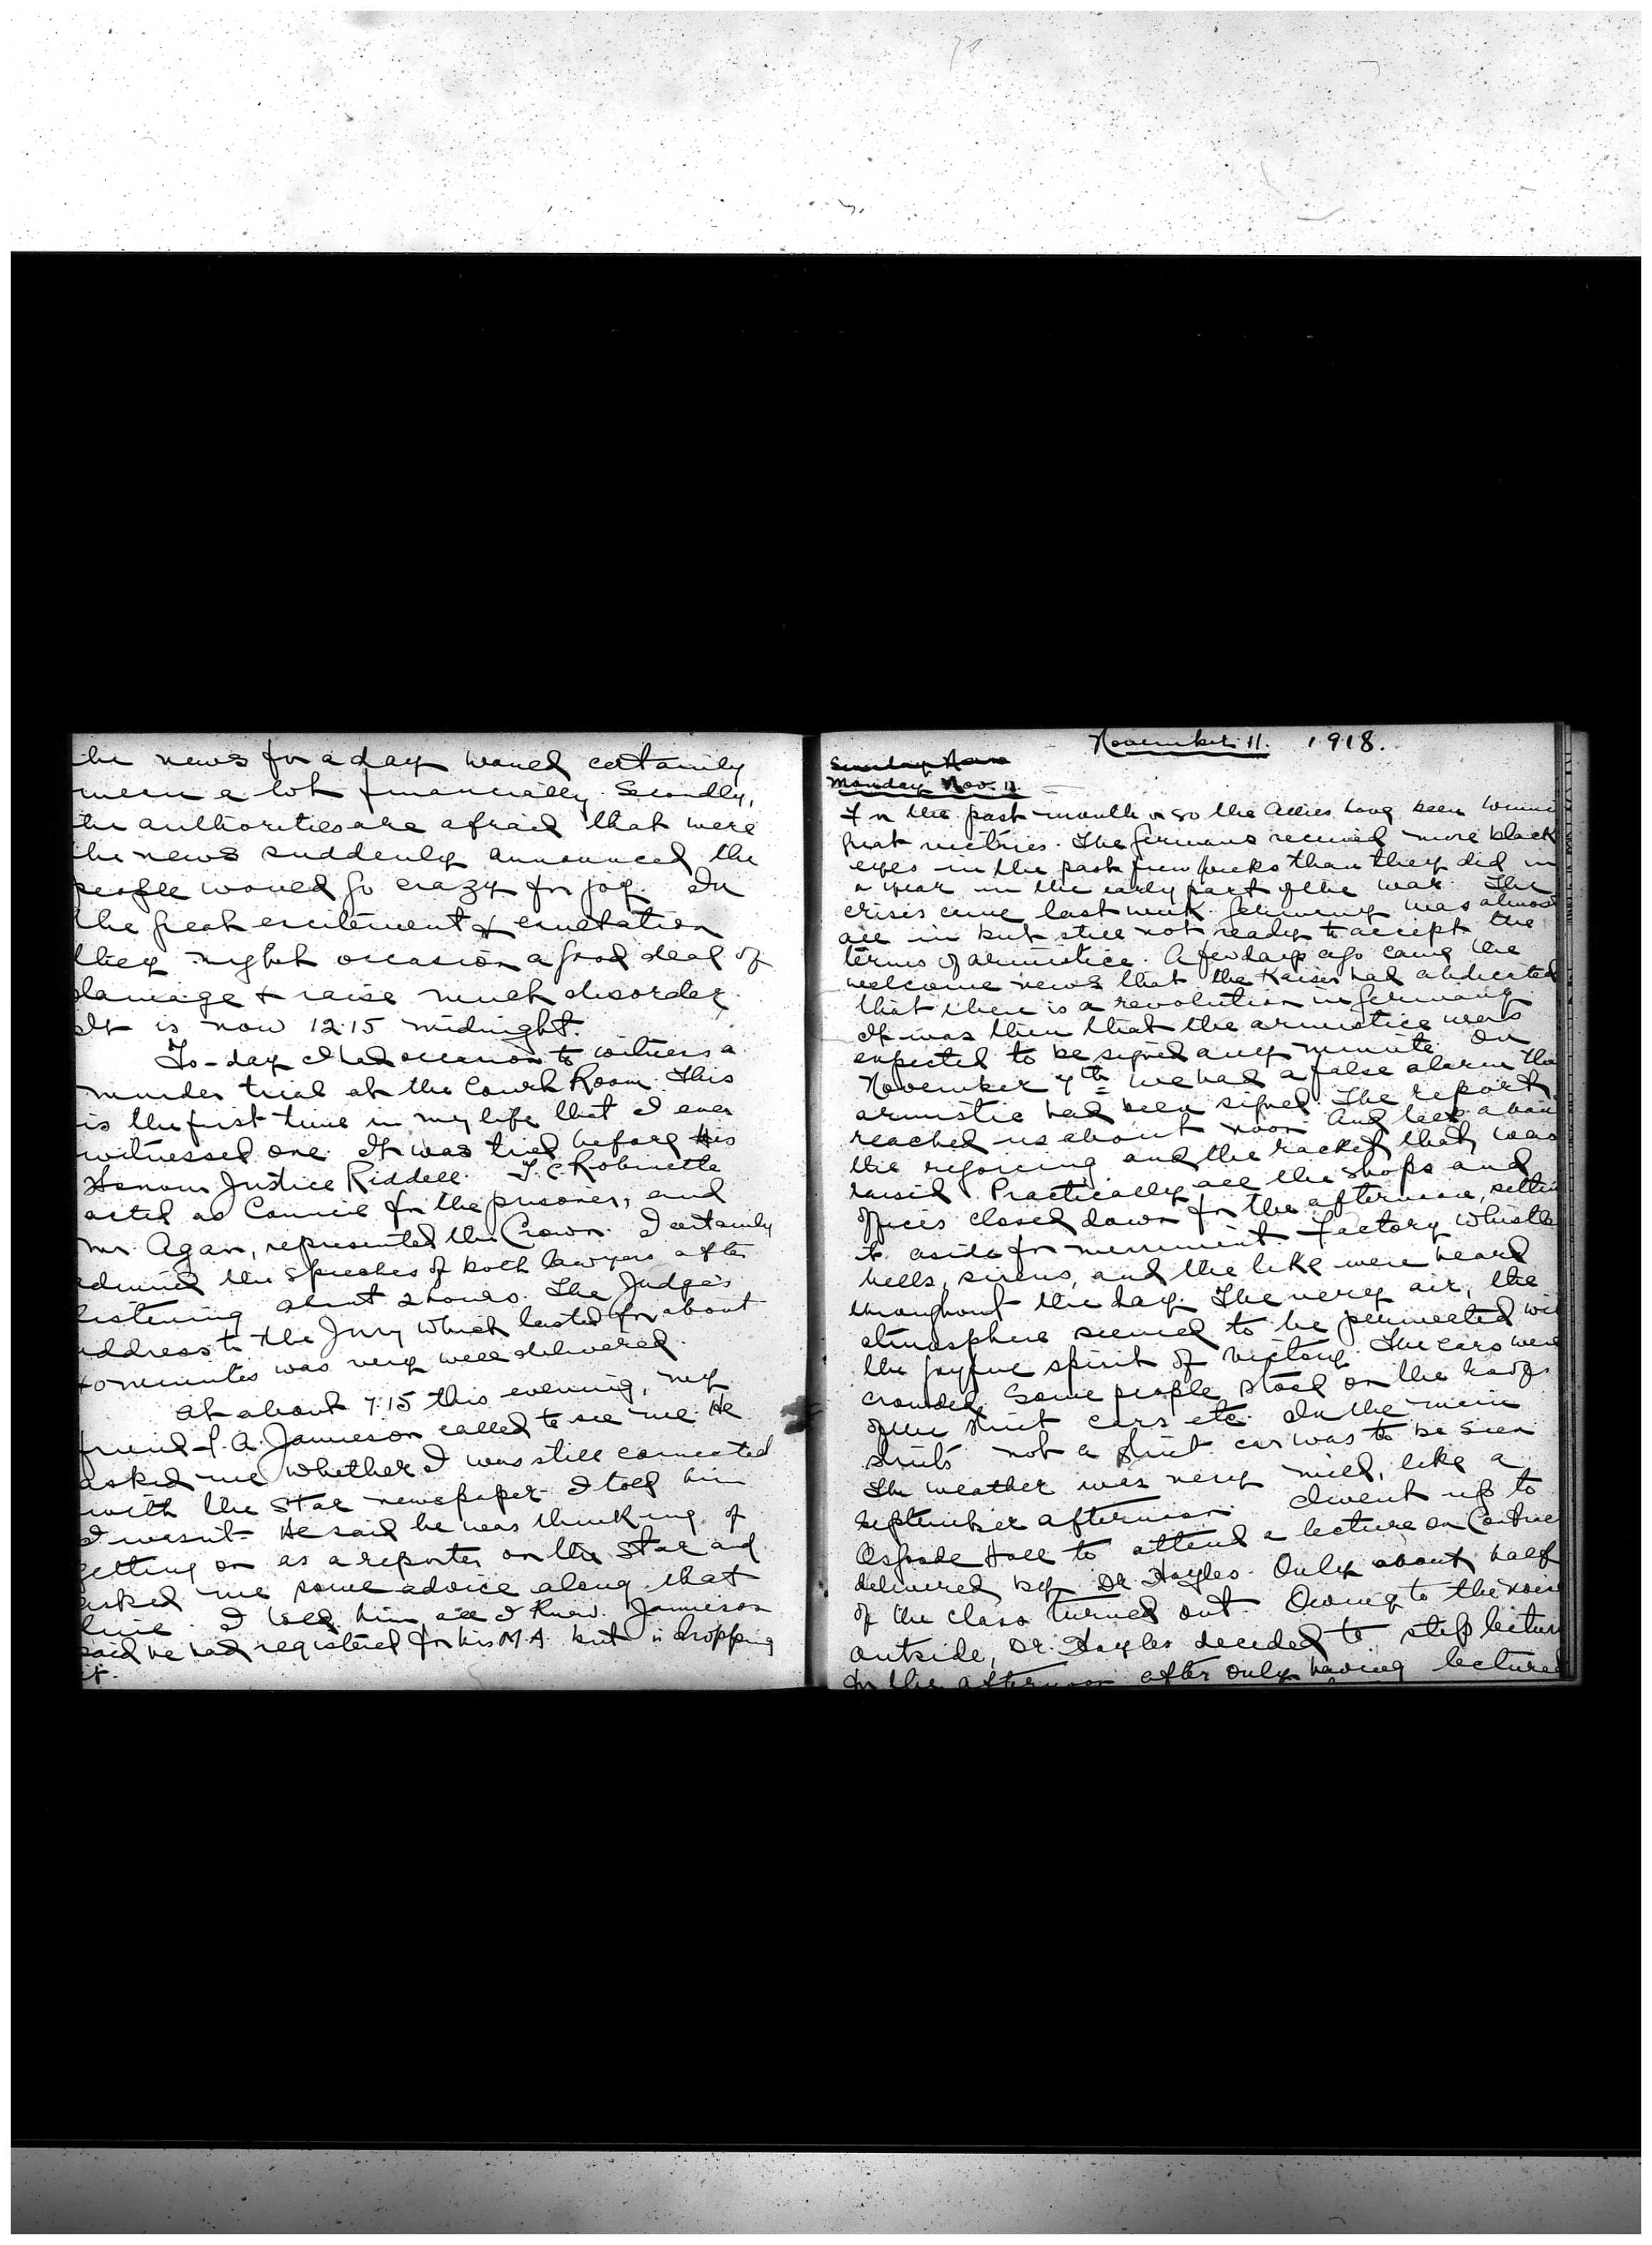 the news for a day would certainly
mean a lot financially. Secondly,
the authorities are afraid that were
the news suddenly announced the
people would go crazy for joy. In
the great excitement & exultation
they might occasion a good deal of
damage & raise much disorder.
It is now 12.15 midnight.
To-day I had occasion to witness a
murder trial at the Court Room. This
is the first time in my life that I ever
witnessed one. It was tried before His
Honour Justice Riddell. T. C. Robinette
acted as Council for the prisoner, and
Mr. Agar, represented the Crown. I certainly
admired the speeches of both lawyers after
listening about 2 hours. The Judge's
address to the Jury which lasted for about
40 minutes was very well delivered.
At about 7.15 this evening, my
friend J. A. Jamieson called to see me. He
asked me whether I was still connected
with the Star newspaper. I told him
I wasn't. He said he was thinking of
getting on as a reporter on the Star and
asked me some advice along that
line. I told him all I knew. Jamieson
said he had registered for his M.A. but is dropping
it.
November 11. 1918.
Monday Nov. 11
In the past month or so the Allies have been
great victories. The Germans received more black
eyes in the past few weeks than they did in
a year in the early part of the war. The
crisis came last week. Germany was almost
all in but still not ready to accept the
terms of armistice. A few days ago came the
welcome news that the Kaiser had abdicated
that there is a revolution in Germany
It was then that the armistice was
expected to be signed any minute. On
November 7th we had a false alarm the
armistic had been signed. The report
reached us about noon. And talk about
the rejoicing and the racket that was
raised. Practically all the shops and
offices closed down for the afternoon, setting
it aside for merriment. Factory whistle
bells, sirens, and the like were heard
throughout the day. The very air, the
atmosphere seemed to be permeated wi
the joyful spirit of victory. The cars were
crowded. Some people stood on the roofs
of the street cars etc. In the main
streets not a street car was to be seen
The weather was very mild, like a
September afternoon. I went up to
Osgoode Hall to attend a lecture on Contrac
delivered by Dr Hoyles. Only about half
of the class turned out. Owing to the noise
outside, Dr. Hoyles decided to stop lectur
for the afternoon after only having lectured